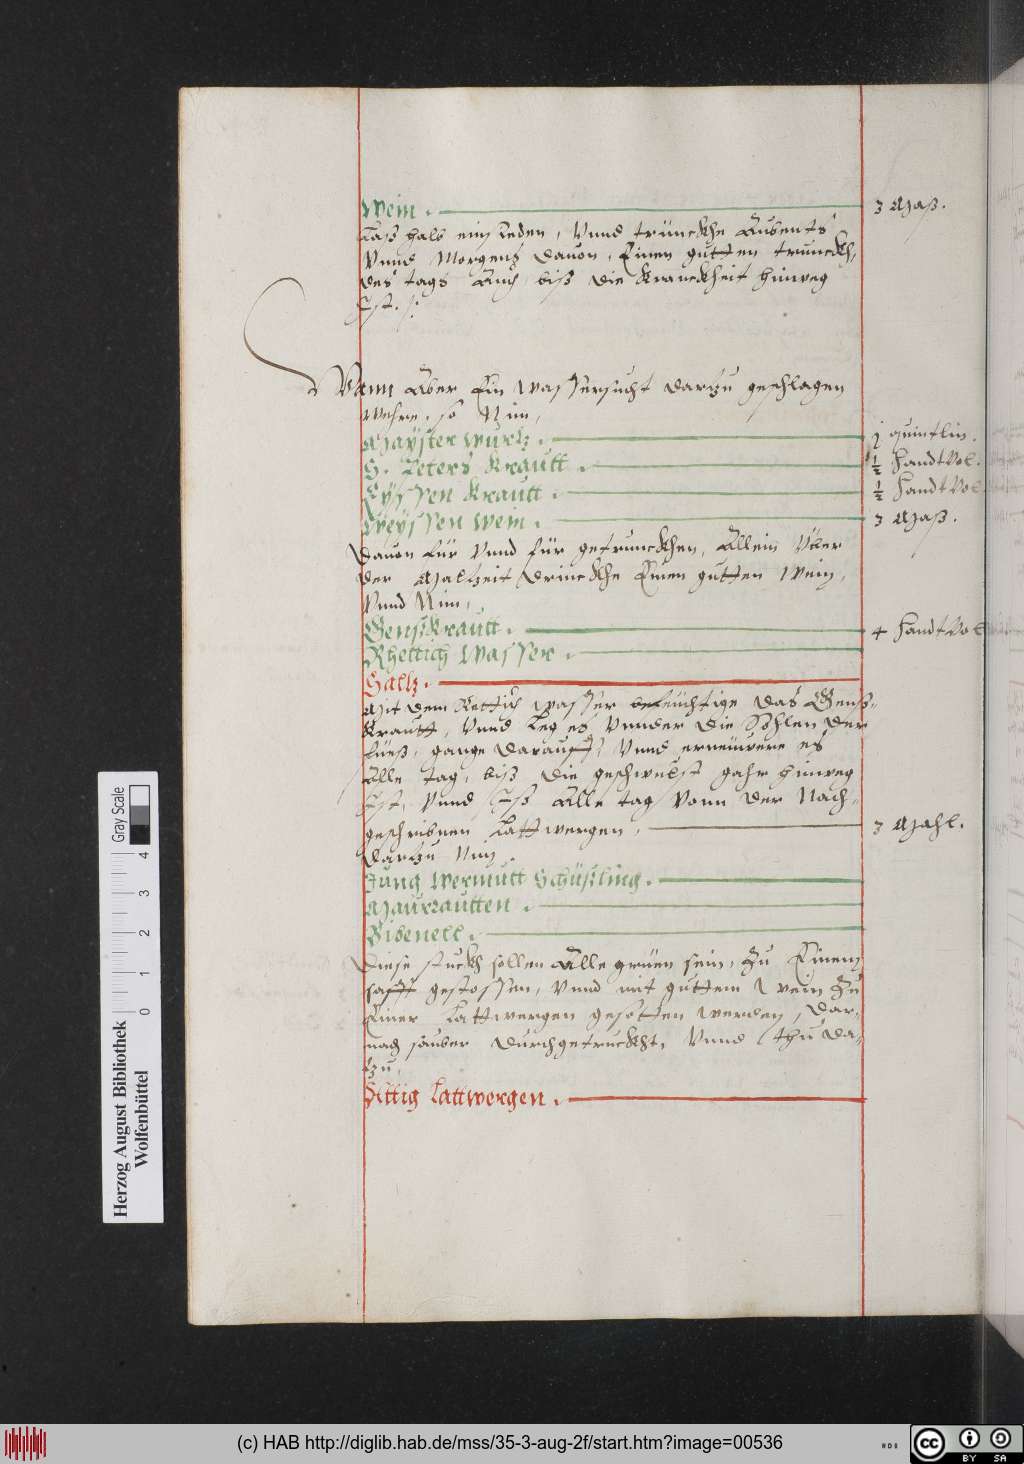 Wein . 3 Maß.
Laß halb einsieden, Vnnd trünckhe Aubents
Vnnd Morgens dauon, Einen gutten trunckh,
des tags Auch, biß die kranckheit hinweg
Ist. /:
Wann Aber Ein wassersucht dartzu geschlagen
Wehre, so Nim,
Mayster wurtz . j quintlin.
S. Peters Krautt . ½ Handtvol.
Eyssen Krautt . ½ Handtvol.
Weyssen Wein . 3 Maß.
Dauon für Vnnd für getrunckhen, Allein Vber
der Maltzeit Drinckhe Einen gutten Wein,
Vnnd Nim,
Genßkrautt . 4 Handtvol
Rhettich Wasser .
Saltz .
Mit dem Rettich wasser befeüchtige das Genß-
krautt, Vnnd Leg es Vnnder die Sohlen der
füeß, gange darauff, Vnnd erneüwere es
Alle tag, biß die geschwulst gahr hinweg
Ist, Vnnd Iß Alle tag Vonn der Nach-
geschribnen Lattwergen, 3 Mahl.
Dartzu Nim .
Jung Wermutt Schüßling .
Maurrautten .
Bibenell .
Diese stuckh sollen Alle grüen sein, Zu Einem
safft gestossen, Vnnd mit guttem Wein Zu
Einer Lattwergen gesotten werden, Dar-
nach sauber Durchgetruckht, Vnnd thu Da-
tzu,
Attig Lattwergen .
Herzog August Bibliothek
Wolfenbüttel
Gray Scale
0 1 2 3 4
(c) HAB http://diglib.hab.de/mss/35-3-aug-2f/start.htm?image=00536
cc BY SA